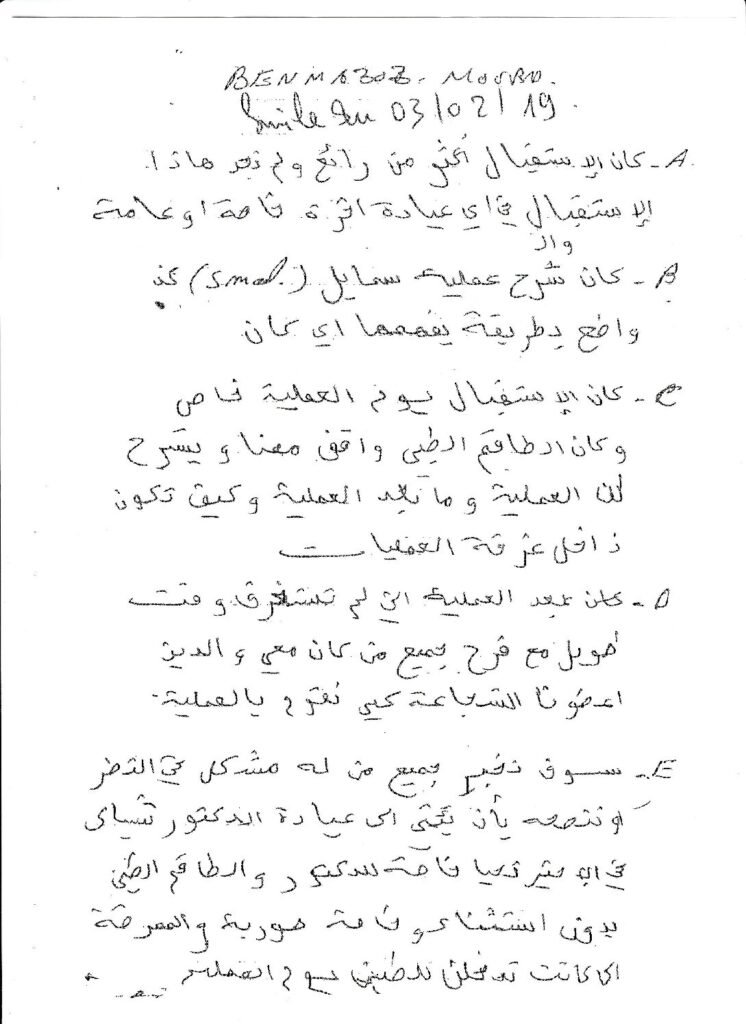 BENMAZOZ. MOURAD.
Smile du 03/02/19.
A - كان الإستقبال أكثر من رائع ولم نجد هاذا
الإستقبال في اي عيادة اخرة خاصة او عامة
B - كان شرح عملية سمايل (smal.) جد
واضح بطريقة يفهمها اي كان
C - كان الإستقبال يوم العملية خاص
وكان الطاقم الطبي واقف معنا ويشرح
لنا العملية وما بعد العملية وكيف تكون
داخل غرفة العمليات
D - كان بعد العملية التي لم تستغرق وقت
طويل مع فرح جميع من كان معي والدين
اعطونا الشجاعة لكي نقوم بالعملية.
E - سوف نخبر جميع من له مشكل في النضر
وننصحه بأن يأتي الى عيادة الدكتور
في خاصة للدكتور والطاقم الطبي
بدون استثناء وخاصة حورية والممرضة
التي كانت تدخلنا للطبيب يوم العملية